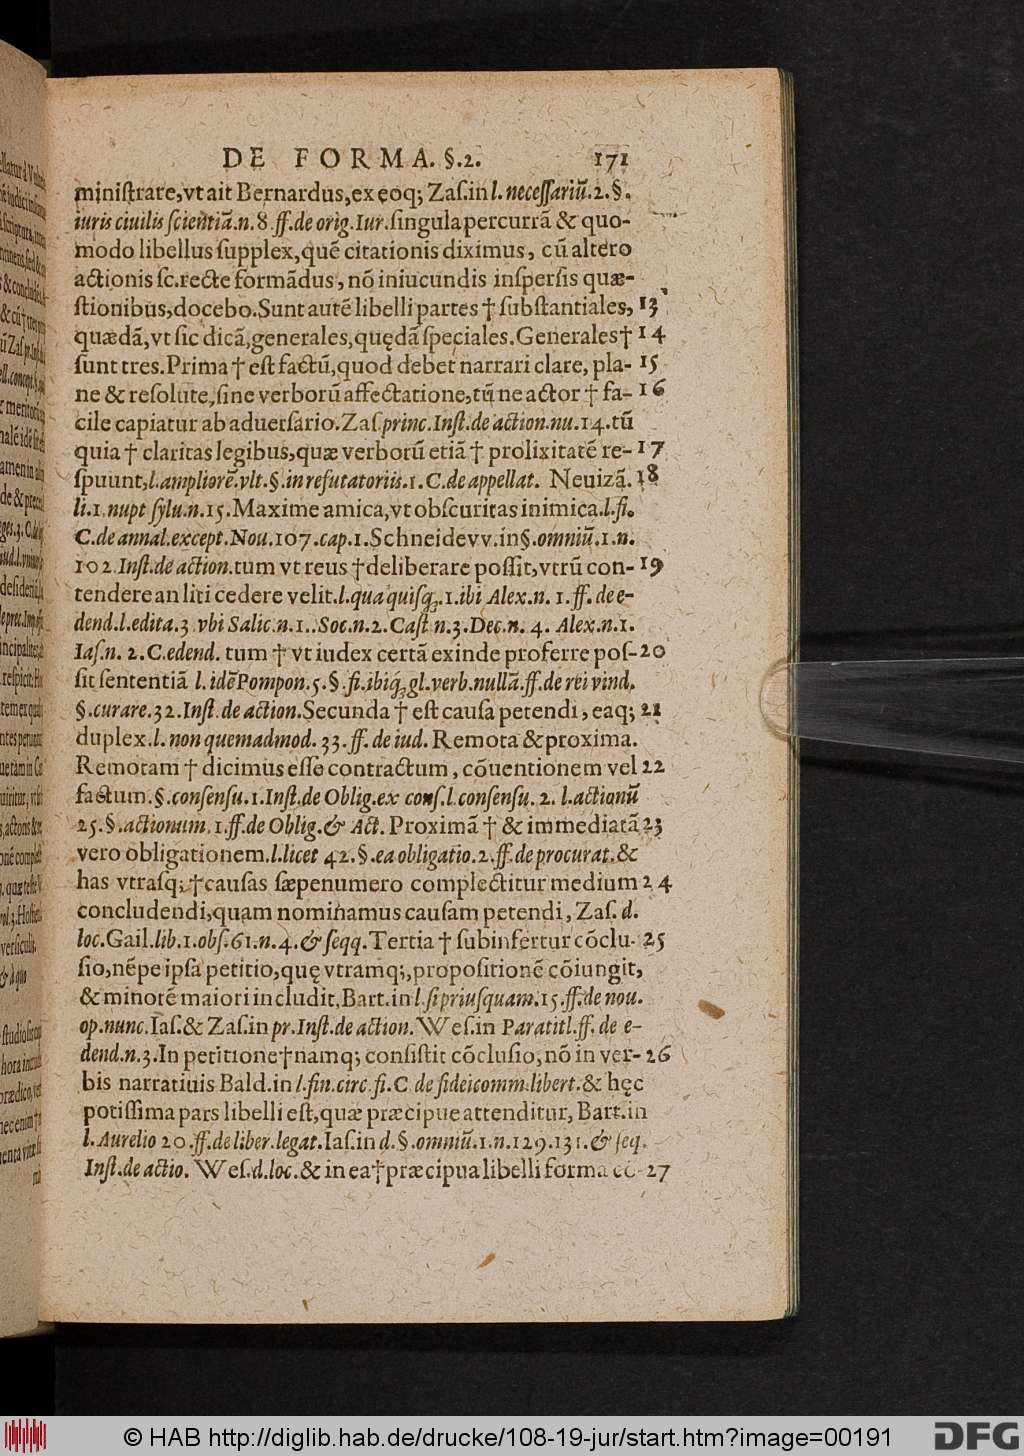 DE FORMA. §.2. 171
miniſtrare, vt ait Bernardus, ex eoq; Zaſ. in l. neceſſariũ. 2. §.
iuris ciuilis ſcientiã. n. 8. ff. de orig. Iur. ſingula percurrã & quo-
modo libellus ſupplex, quẽ citationis diximus, cũ altero
actionis ſc. recte formãdus, nõ iniucundis inſperſis quæ-
ſtionibus, docebo. Sunt autẽ libelli partes † ſubſtantiales, 13
quædã, vt ſic dicã, generales, quędã ſpeciales. Generales † 14
ſunt tres. Prima † eſt factũ, quod debet narrari clare, pla- 15
ne & reſolute, ſine verborũ affectatione, tũ ne actor † fa- 16
cile capiatur ab aduerſario. Zaſ princ. Inſt. de action. nu. 14. tũ
quia † claritas legibus, quæ verborũ etiã † prolixitatẽ re- 17
ſpuunt, l. ampliorẽ. vlt. §. in refutatoriis. 1. C. de appellat. Nevizã. 18
li. 1. nupt ſylu. n. 15. Maxime amica, vt obſcuritas inimica. l. fi.
C. de annal. except. Nou. 107. cap. 1. Schneidevv. in §. omniũ. 1. n.
102. Inſt. de action. tum vt reus † deliberare poſſit, vtrũ con- 19
tendere an liti cedere velit. l. qua quiſq;. 1. ibi Alex. n. 1. ff. de e-
dend. l. edita. 3. vbi Salic. n. 1.. Soc. n. 2. Caſt n. 3. Dec. n. 4. Alex. n. 1.
Iaſ. n. 2. C. edend. tum † vt iudex certã exinde proferre poſ- 20
ſit ſententiã l. idẽ Pompon. 5. §. fi. ibiq; gl. verb. nullã. ff. de rei vind.
§. curare. 32. Inſt. de action. Secunda † eſt cauſa petendi, eaq; 21
duplex. l. non quemadmod. 33. ff. de iud. Remota & proxima.
Remotam † dicimus eſſe contractum, cõuentionem vel 22
factum. §. conſenſu. 1. Inſt. de Oblig. ex conſ. l. conſenſu. 2. l. actionũ
25. §. actionum. 1. ff. de Oblig. & Act. Proximã † & immediatã 23
vero obligationem. l. licet 42. §. ea obligatio. 2. ff. de procurat. &
has vtraſq; † cauſas ſæpenumero complectitur medium 24
concludendi, quam nominamus cauſam petendi, Zaſ. d.
loc. Gail. lib. 1. obſ. 61. n. 4. & ſeqq. Tertia † ſubinfertur cõclu- 25
ſio, nẽpe ipſa petitio, quę vtramq;, propoſitionẽ cõiungit,
& minorẽ maiori includit, Bart. in l. ſi priuſquam. 15. ff. de nou.
op. nunc. Iaſ. & Zaſ. in pr. Inſt. de action. Weſ. in Paratitl. ff. de e-
dend. n. 3. In petitione † namq; conſiſtit cõcluſio, nõ in ver- 26
bis narratiuis Bald. in l. fin. circ. fi. C de fideicomm. libert. & hęc
potiſſima pars libelli eſt, quæ præcipue attenditur, Bart. in
l. Aurelio 20. ff. de liber. legat. Iaſ. in d. §. omniũ. 1. n. 129. 131. & ſeq.
Inſt. de actio. Weſ. d. loc. & in ea † præcipua libelli forma cõ- 27
© HAB http://diglib.hab.de/drucke/108-19-jur/start.htm?image=00191
DFG